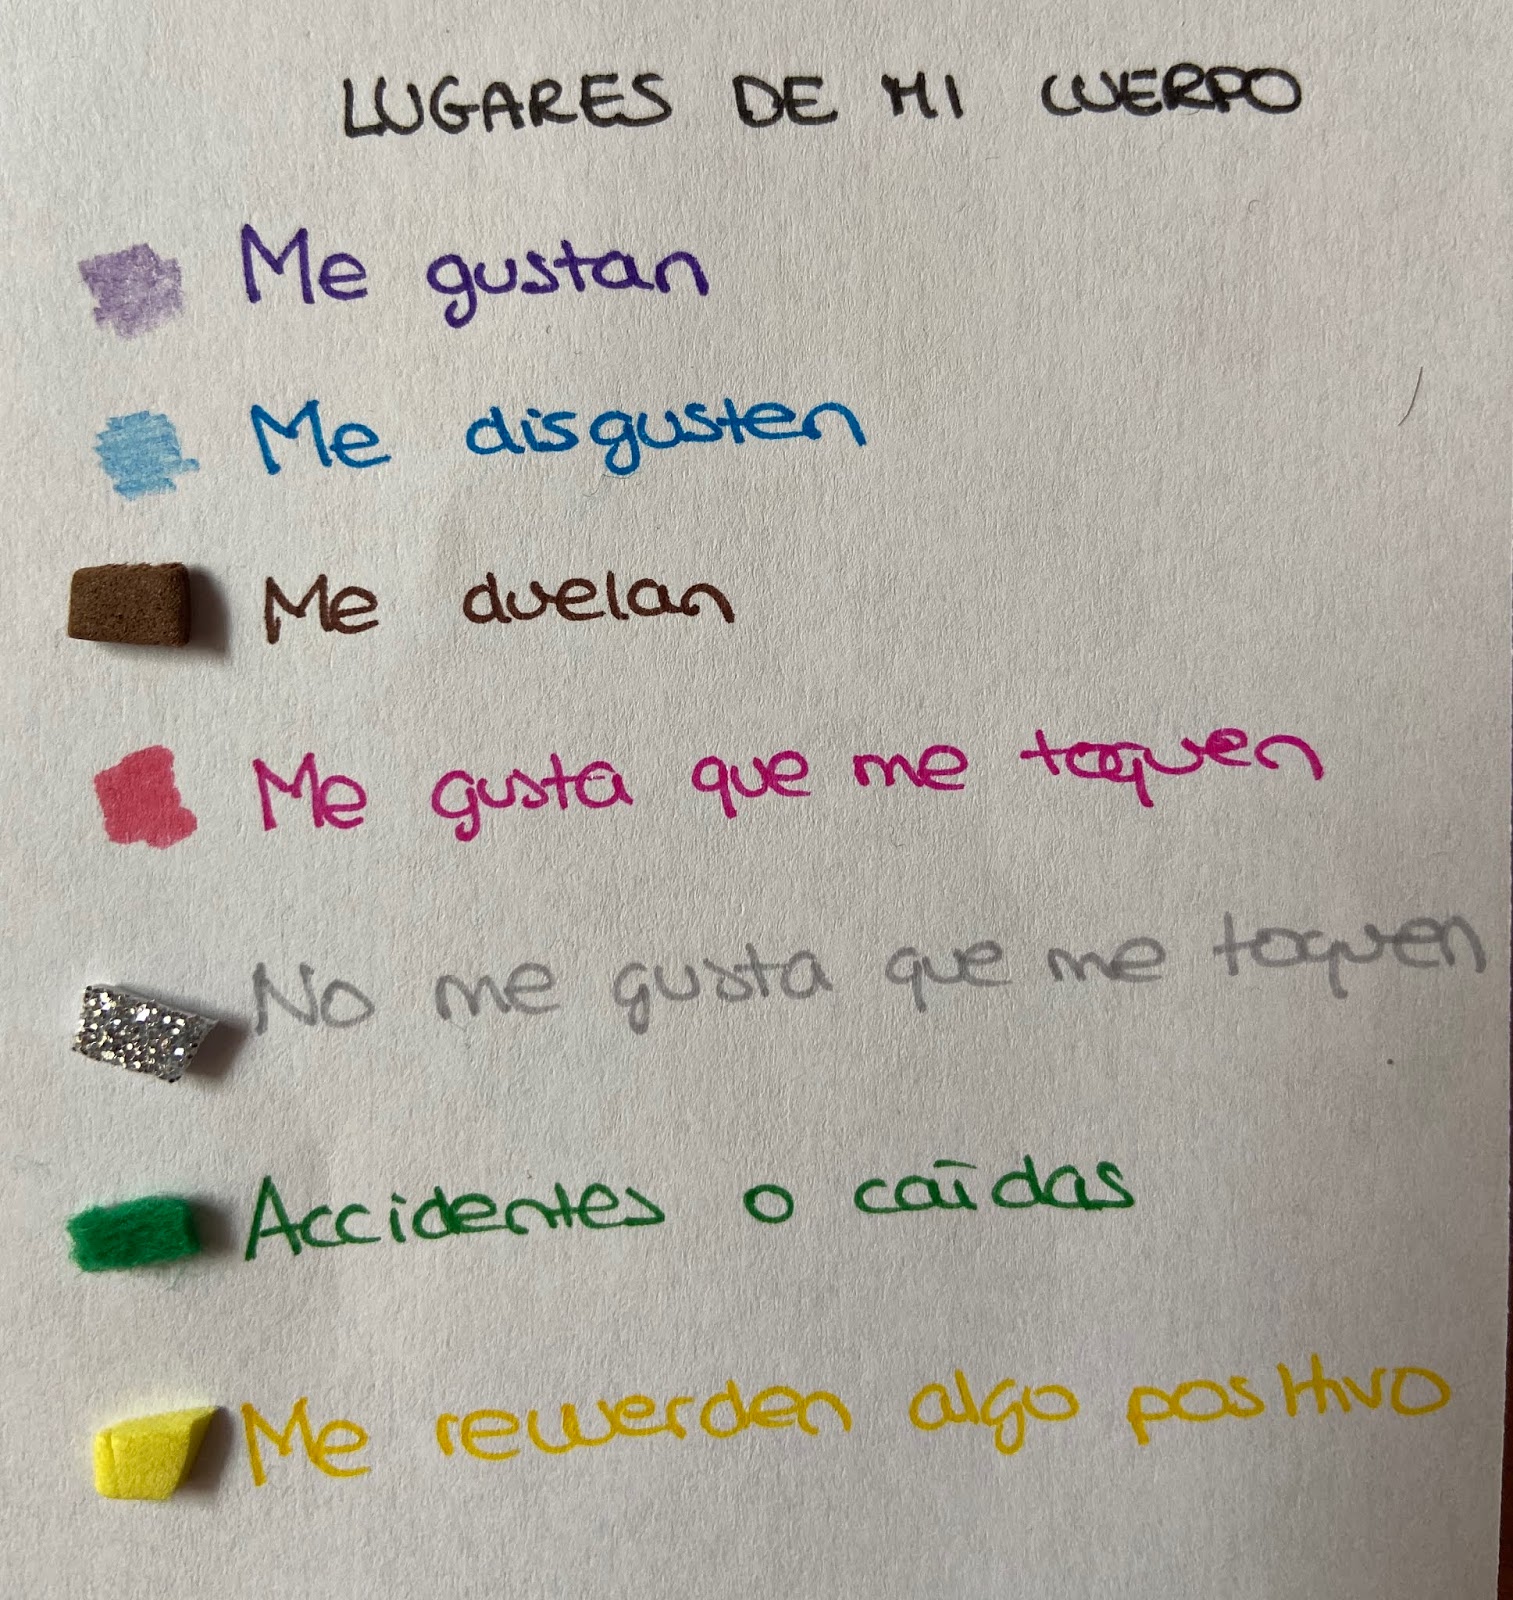 LUGARES DE MI CUERPO
Me gustan
Me disgusten
Me duelan
Me gusta que me toquen
No me gusta que me toquen
Accidentes o caídas
Me recuerden algo positivo